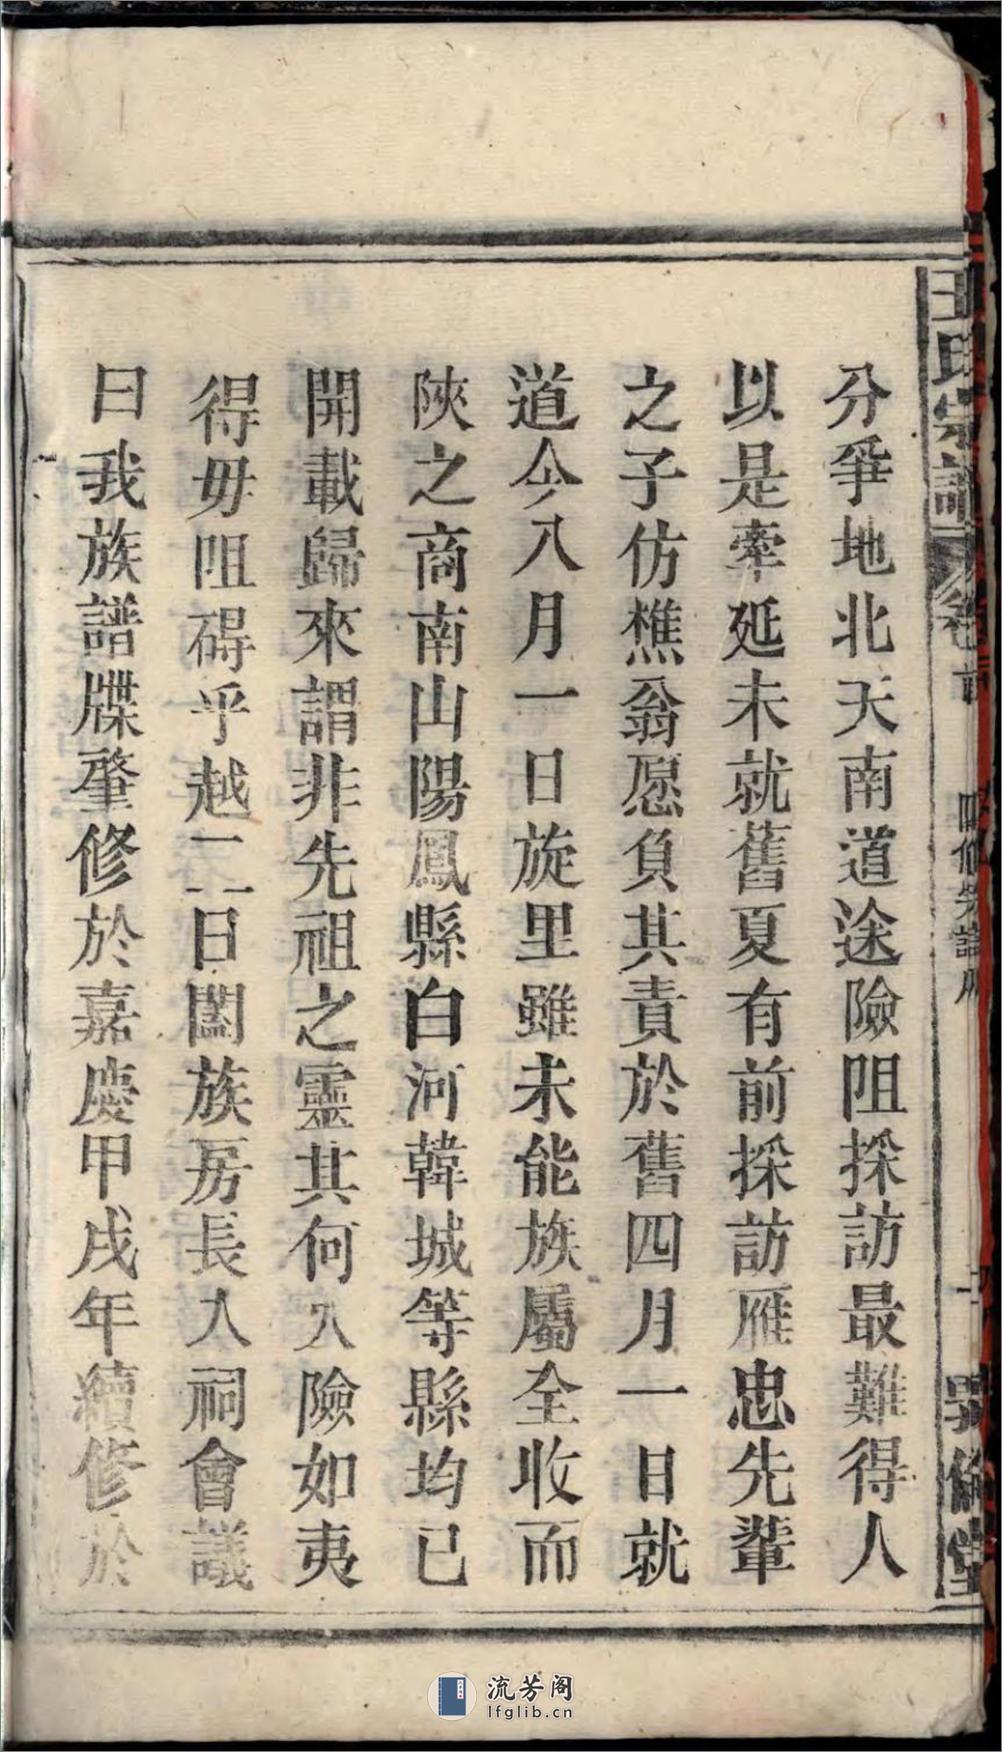 王氏宗譜
卷首
四修宗譜序
敦倫堂
分爭地北天南道途險阻採訪最難得人
以是牽延未就舊夏有前採訪雁忠先輩
之子仿樵翁愿負其責於舊四月一日就
道今八月一日旋里雖未能族屬全收而
陝之商南山陽鳳縣白河韓城等縣均已
開載歸來謂非先祖之靈其何入險如夷
得毋阻碍乎越一二日闔族房長入祠會議
曰我族譜牒肇修於嘉慶甲戌年續修於
流芳阁
lfglib.cn